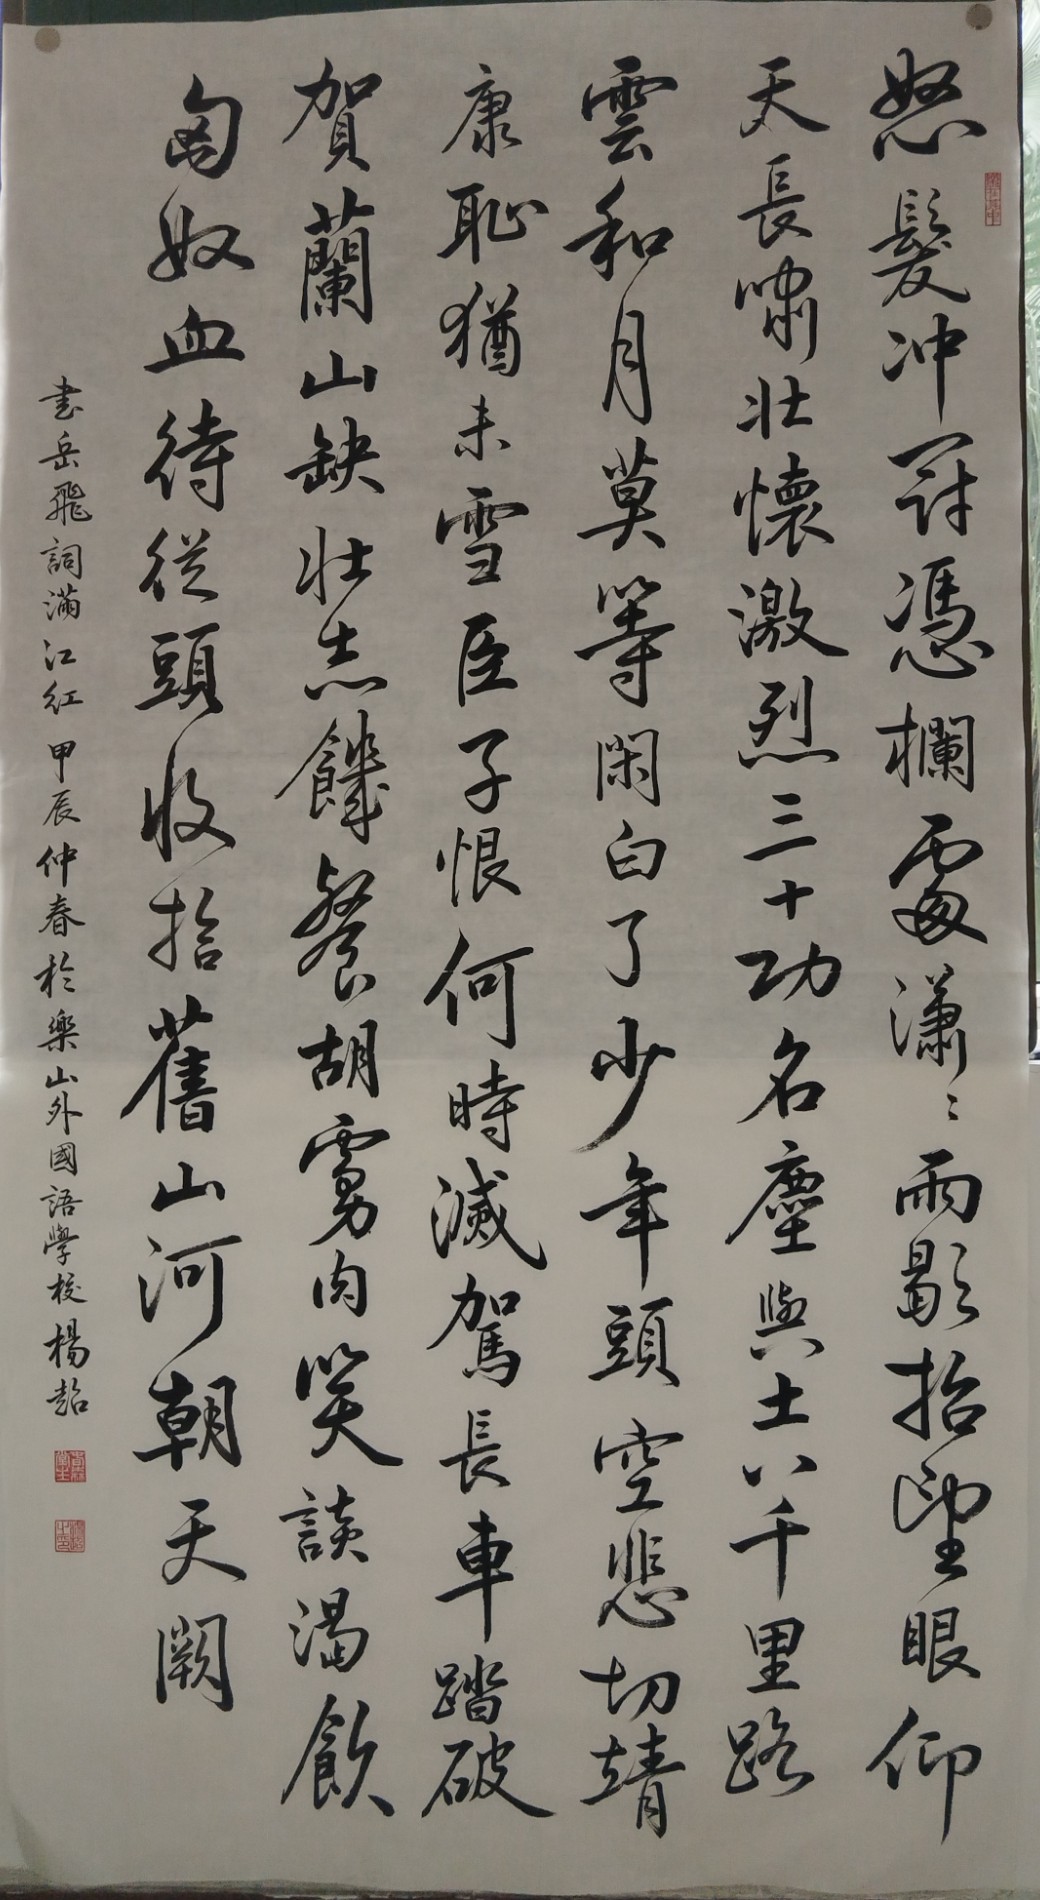 怒髮冲冠憑欄處潇〻雨歇抬望眼仰
天長嘯壯懷激烈三十功名塵與土八千里路
雲和月莫等閑白了少年頭空悲切靖
康恥猶未雪臣子恨何時滅駕長車踏破
賀蘭山缺壯志饑餐胡虜肉笑談渴飲
匈奴血待從頭收拾舊山河朝天闕
書岳飛詞滿江紅甲辰仲春於樂山外國語學校楊超